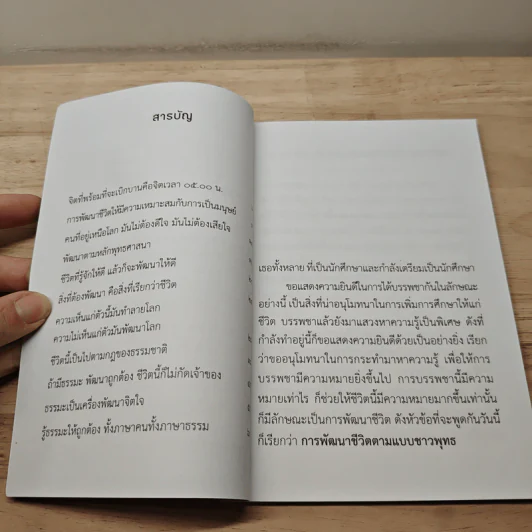 สารบัญ
จิตที่พร้อมที่จะเบิกบานคือจิตเวลา ๐๕.๐๐ น.
การพัฒนาชีวิตให้มีความเหมาะสมกับการเป็นมนุษย์
คนที่อยู่เหนือโลก มันไม่ต้องดีใจ มันไม่ต้องเสียใจ
พัฒนาตามหลักพุทธศาสนา
ชีวิตที่รู้จักให้ดี แล้วก็จะพัฒนาให้ดี
สิ่งที่ต้องพัฒนา คือสิ่งที่เรียกว่าชีวิต
ความเห็นแก่ตัวนี้มันทำลายโลก
ความไม่เห็นแก่ตัวมันพัฒนาโลก
ชีวิตนี้เป็นไปตามกฎของธรรมชาติ
ถ้ามีธรรมะ พัฒนาถูกต้อง ชีวิตนี้ก็ไม่กัดเจ้าของ
ธรรมะเป็นเครื่องพัฒนาจิตใจ
รู้ธรรมะให้ถูกต้อง ทั้งภาษาคนทั้งภาษาธรรม
เธอทั้งหลาย ที่เป็นนักศึกษาและกำลังเตรียมเป็นนักศึกษา
ขอแสดงความยินดีในการได้บรรพชากันในลักษณะ
อย่างนี้ เป็นสิ่งที่น่าอนุโมทนาในการเพิ่มการศึกษาให้แก่
ชีวิต บรรพชาแล้วยังมาแสวงหาความรู้เป็นพิเศษ ดังที่
กำลังทำอยู่นี้ก็ขอแสดงความยินดีด้วยเป็นอย่างยิ่ง เรียก
ว่าขออนุโมทนาในการกระทำมาหาความรู้ เพื่อให้การ
บรรพชามีความหมายยิ่งขึ้นไป การบรรพชานี้มีความ
หมายเท่าไร ก็ช่วยให้ชีวิตนี้มีความหมายมากขึ้นเท่านั้น
ก็มีลักษณะเป็นการพัฒนาชีวิต ดังหัวข้อที่จะพูดกันวันนี้
ก็เรียกว่า การพัฒนาชีวิตตามแบบชาวพุทธ